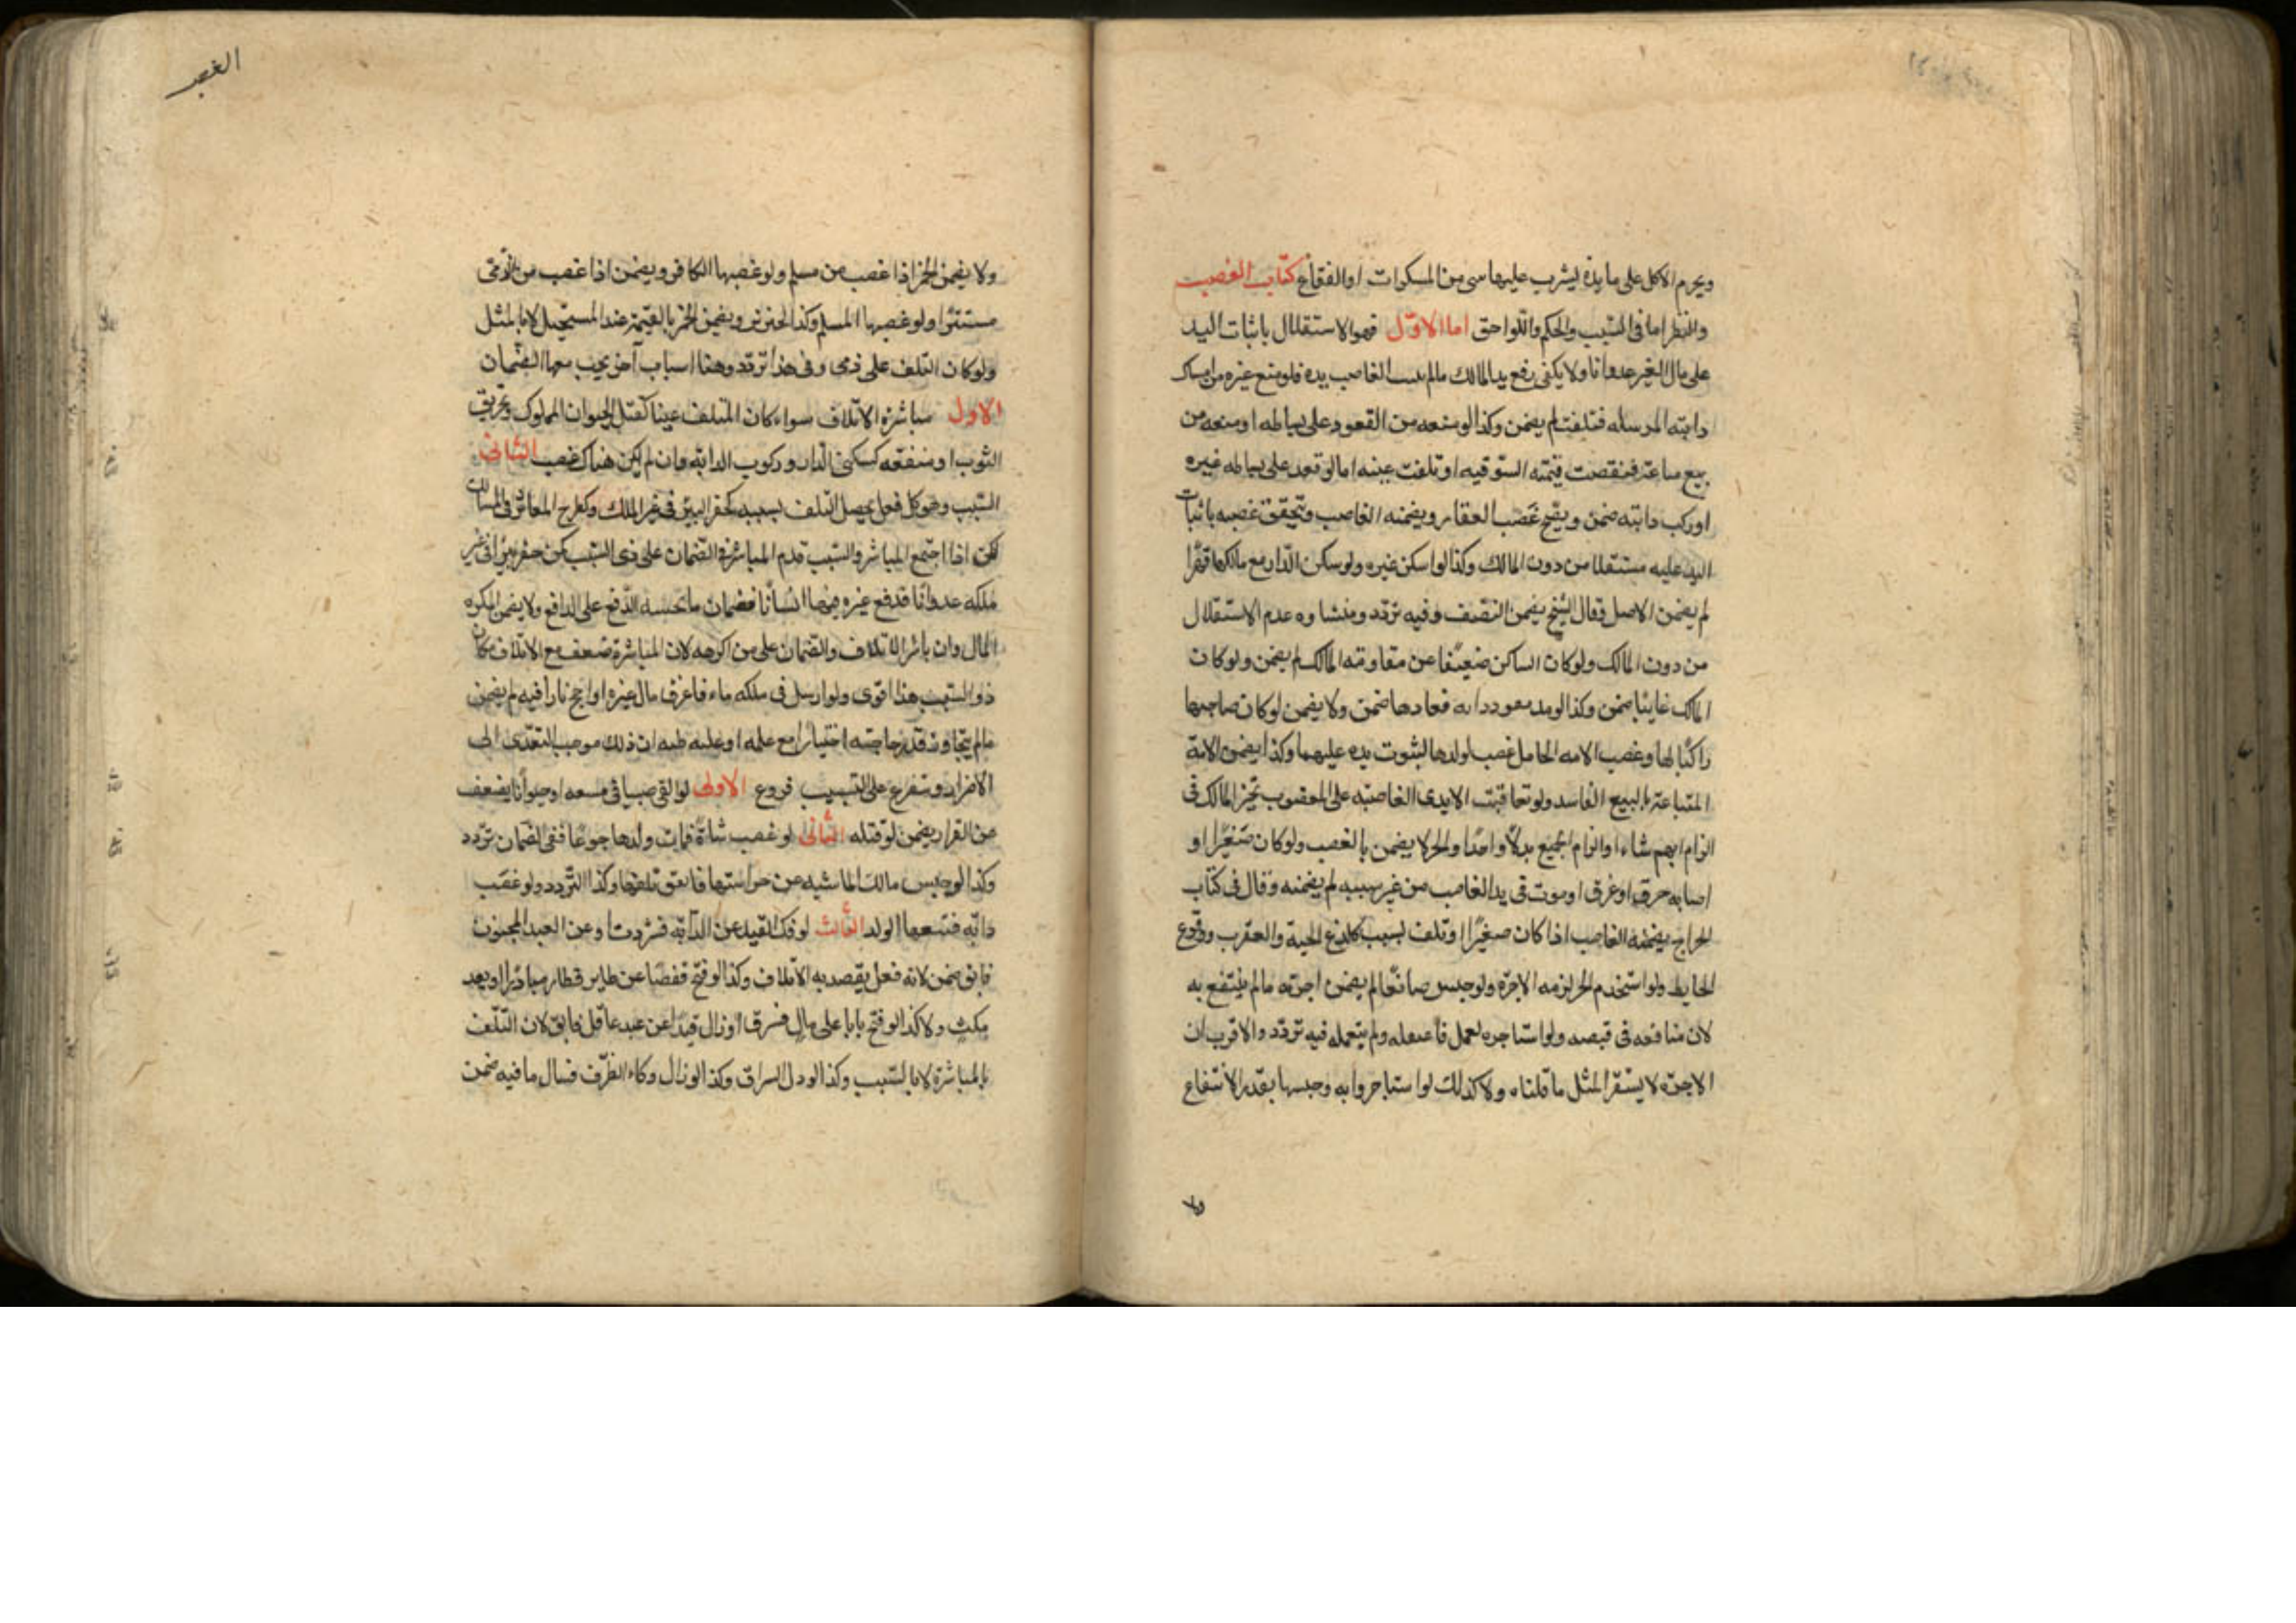 ويحرم الاكل على مايدة ليشرب عليها سى من المسكرات او الفقاع كتاب الغصب
والنظر اما فى السّبب والحكم واللّواحق اما الاوّل فهو الاستقلال باثبات اليد
على مال الغير عدوانا ولا يكفى رفع يد المالك مالم الغاصب يده فلو منع غيره من امساك
دابته المرسله فتلفت لم يضمن وكذا لو منعه من القعود على بساطه او منعه من
بيع متاعه فنقصت قيمته السّوقيه او تلفت عينه اما لو قعد على بساط غيره
او ركب دابته ضمن ويصّح غصب العقار ويضمنه الغاصب ويتحقق غصبه باثبات
اليد عليه مستقلا من دون المالك وكذا لو اسكن غيره ولو سكن الدّار مع مالكها قهرًا
لم يضمن الاصل وقال الشيخ يضمن النّصف وفيه تردّد ومنشاوه عدم الاستقلال
من دون المالك ولو كان الساكن ضعيفًا عن مقاومته المالك لم يضمن ولو كان
المالك غايبًا ضمن وكذا لو مد دابه فعادها ضمن ولا يضمن لو كان صاحبها
راكبًا لها وغصب الامه الحامل غصب لولدها لثبوت يده عليهما وكذا يضمن الامة
المتباعة بالبيع الفاسد ولو تعاقبت الايدى الغاصبه على المغصوب تخير المالك فى
الزام ايهم شاء او الزام الجميع بدلًا واحدًا والحر لا يضمن بالغصب ولو كان صغيرًا ولو
اصابه حرق او غرق او موت فى يد الغاصب من غير سببه لم يضمنه وقال فى كتاب
الجراح يضمنه الغاصب اذا كان صغيرًا وتلف بسبب كلدغ الحية والعقرب ووقوع
الحايط ولو استخدم الحر لزمه الاجرة ولو حبس صانعًا لم يضمن اجرته مالم ينتفع به
لان منافعه فى قبضه ولو استاجره لعمل فاعتقله ولم يستعمله فيه تردّد والاقرب ان
الاجرة لا يستقر لمثل ما قلناه ولا كذلك لو استاجر دابه وحبسها بقدر الانتفاع
ولا
الغصب
ولا يضمن الخمر اذا غصب من مسلم ولو غصبها الكافر ويضمن اذا غصب من ذمّى
مستترًا ولو غصبها المسلم وكذا الخنزير ويضمن الخمر بالقيمة عند المستحيل لا بالمثل
ولو كان التلف على ذمى وفى هذا تردّد وهنا اسباب آخر يجب معها الضّمان
الاول مباشرة الاتلاف سواء كان المتلف عينا كقتل الحيوان المملوك وتحريق
الثوب او منفعه كسكنى الدار وركوب الدابه وان لم يكن هناك غصب الثانى
السّبب وهو كل فعل يحصل التلف بسببه كحفر البير فى غير الملك وكطرح المعاثر فى المسالك
لكن اذا اجتمع المباشر والسّبب قدم المباشر فى الضّمان على ذى السّبب كمن حفر بيرًا فى غير
ملكه عدوانًا فدفع غيره فيها انسانًا فضمان ما تجنيه الدّفع على الدافع ولا يضمن المكره
المال وان باشر الاتلاف والضّمان على من اكرهه لان المباشرة ضعف مع الاتلاف فكان
ذو السّبب هذا اقوى ولو ارسل فى ملكه ماء فاغرق مال غيره او اجج نارًا فيه لم يضمن
مالم يتجاوز قدر حاجته اختيارًا مع علمه او غلبه ظنه ان ذلك موجب للتعدّى الى
الاضرار ويتفرع على التسبيب فروع الاولى لو القى صبيا فى مسبعه او حيوانًا يضعف
عن الفرار يضمن لو قتله الثّانى لو غصب شاة فمات ولدها جوعًا ففى الضمان تردّد
وكذا لو حبس مالك الماشيه عن حراستها فاتفق تلفها وكذا التّردد ولو غصب
دابّه فتبعها الولد الثّالث لو فك القيد عن الدّابّه فشردت او عن العبد المجنون
فابق ضمن لانه فعل يقصد به الاتلاف وكذا لو فتح قفصًا عن طاير فطار مبادرًا او بعد
مكث ولا كذا لو فتح بابا على مال فسرق او زال قيدًا عن عبد عاقل فابق لان التّلف
بالمباشرة لا بالسّبب وكذا لو دل السراق وكذا لو زال وكاء الظرف فسال ما فيه ضمن